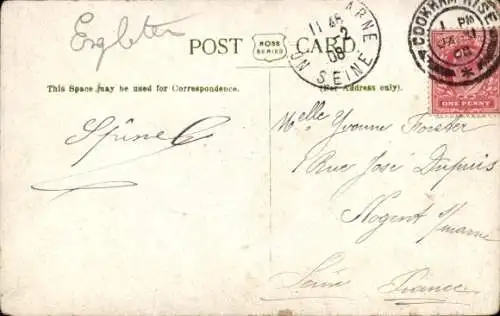 POST CARD.
ROSS SERIES
This Space may be used for Correspondence.
(For Address only.)
11 45
2
08
SEINE
COOKHAM RISE
1 PM
08
ONE PENNY
Melle Yvonne Forster
Rue José Dupuis
Nogent s/marne
Seine France